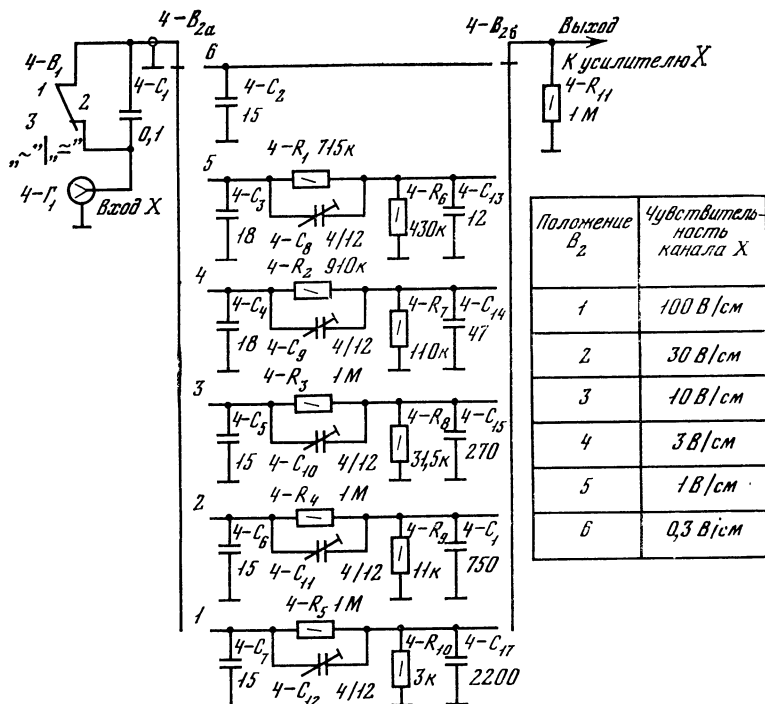 4-В2а
4-В2б
Выход
К усилителю X
4-В1
1
2
3
„~"|„≂"
4-С1
0,1
4-Г1
Вход X
4-R11
1М
6
4-С2
15
5
4-R1 715к
4-С3
18
4-С8
4/12
4-R6
430к
4-С13
12
4
4-R2 910к
4-С4
18
4-С9
4/12
4-R7
110к
4-С14
47
3
4-R3 1М
4-С5
15
4-С10
4/12
4-R8
31,5к
4-С15
270
2
4-R4 1М
4-С6
15
4-С11
4/12
4-R9
11к
4-С1
750
1
4-R5 1М
4-С7
15
4-С12
4/12
4-R10
3к
4-С17
2200
Положение В2
Чувствительность канала X
1
100 В/см
2
30 В/см
3
10 В/см
4
3 В/см
5
1 В/см
6
0,3 В/см